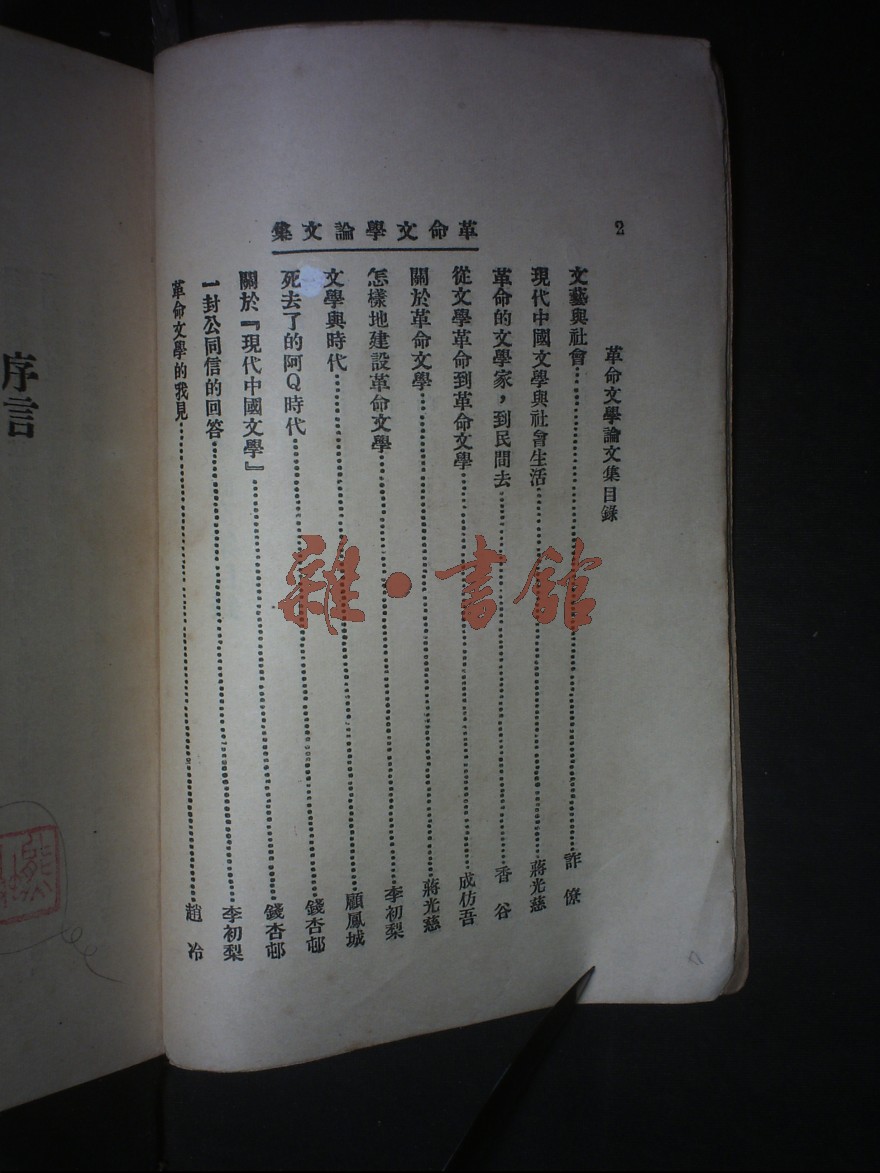 2
革命文學論文集
革命文學論文集目錄
文藝與社會……………………詐僚
現代中國文學與社會生活……………………蔣光慈
革命的文學家，到民間去……………………香谷
從文學革命到革命文學……………………成仿吾
關於革命文學……………………蔣光慈
怎樣地建設革命文學……………………李初梨
文學與時代……………………顧鳳城
死去了的阿Q時代……………………錢杏邨
關於『現代中國文學』……………………錢杏邨
一封公同信的回答……………………李初梨
革命文學的我見……………………趙冷
序言
雜·書館